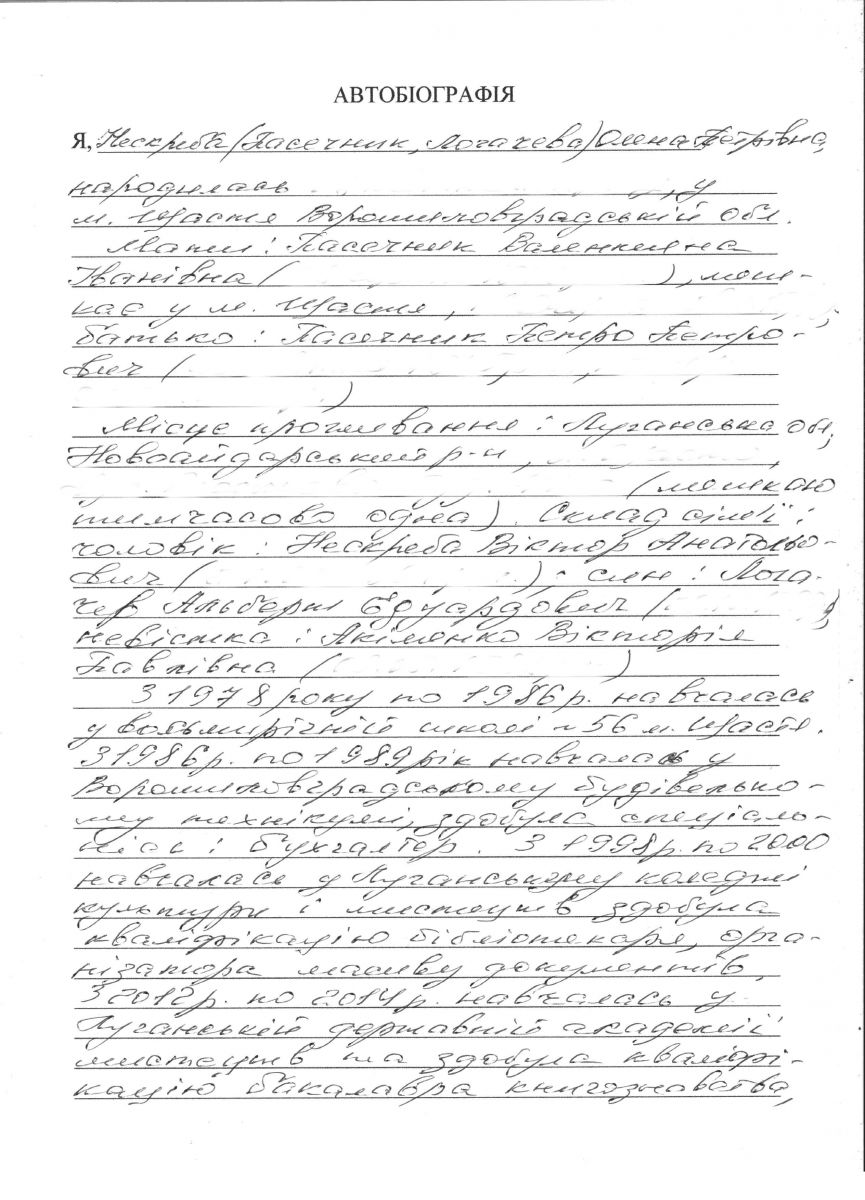 АВТОБІОГРАФІЯ
Я, Нескреба (Пасечник, Логачева) Олена Петрівна,
народилась , у
м. Щастя Ворошиловградській обл.
Мати: Пасечник Валентина
Іванівна ( ), меш-
кає у м. Щастя,
батько: Пасечник Петро Петро-
вич (
)
Місце проживання: Луганська обл,
Новоайдарський р-н,
(мешкаю
тимчасово одна). Склад сім'ї:
чоловік: Нескреба Віктор Анатольо-
вич ( ); син: Лога-
чев Альберт Едуардович (
невістка: Акіменко Вікторія
Павлівна ( )
З 1978 року по 1986 р. навчалась
у восьмирічній школі №56 м. Щастя.
З 1986р. по 1989 рік навчалась у
Ворошиловградському будівельно-
му технікумі, здобула спеціаль-
ність: бухгалтер. З 1998р. по 2000
навчалась у Луганському коледжі
культури і мистецтв здобула
кваліфікацію бібліотекаря, орга-
нізатора масиву документів.
З 2012р. по 2014р. навчалась у
Луганській державній академії
мистецтв та здобула кваліфі-
кацію бакалавра книгознавства,